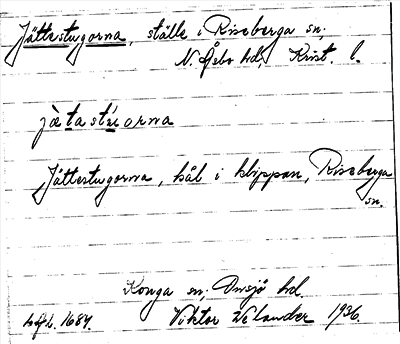 Jättestugorna, ställe i Riseberga sn,
N. Åsbo hd, Krist. l.
jätastúorna
Jättestugorna, hål i klippan, Riseberga
sn.
Konga sn, Onsjö hd.
1684. Viktor Welander 1936.